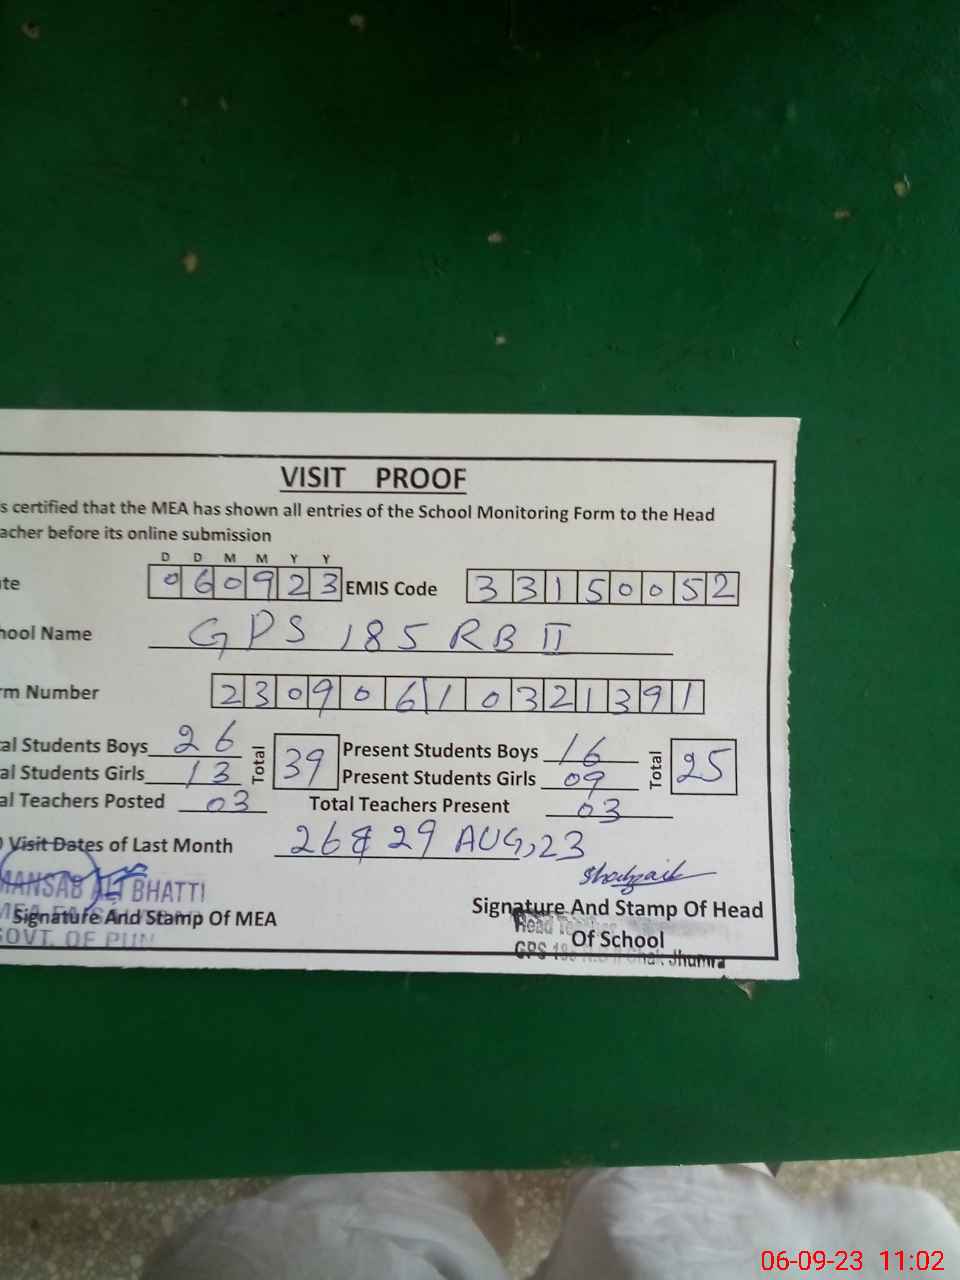 VISIT PROOF
s certified that the MEA has shown all entries of the School Monitoring Form to the Head
acher before its online submission
D D M M Y Y
te 060923 EMIS Code 33150052
hool Name GPS 185 RB II
rm Number 23090610321391
al Students Boys 26 Total 39 Present Students Boys 16 Total 25
al Students Girls 13 Present Students Girls 09
al Teachers Posted 03 Total Teachers Present 03
Visit Dates of Last Month 26 & 29 AUG, 23
MANSAB ALI BHATTI
Signature And Stamp Of MEA
GOVT. OF PUN
Signature And Stamp Of Head
Of School
Head
GPS Chak Jhumra
06-09-23 11:02